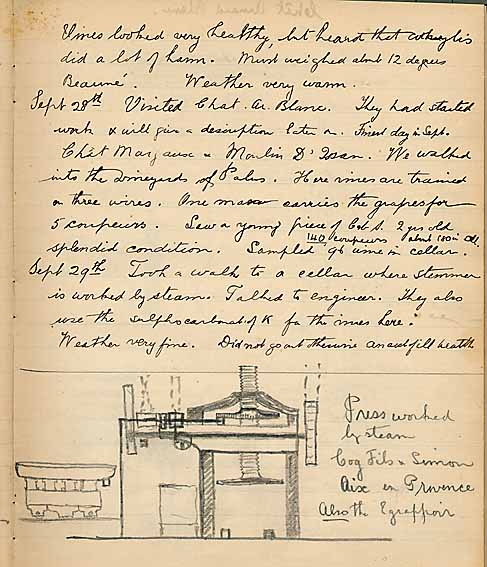 Vines looked very healthy, but heard that
did a lot of harm. Must weighed about 12 degrees
Beaumé. Weather very warm.
Sept 28th Visited Chat. Ar. Blanc. They had started
work & will give a description later on. Finest day in Sept.
Chât Margaux & Moulin D'Issan. We walked
into the vineyards of Palus. Here vines are trained
on three wires. One man carries the grapes for
5 coupeurs. Saw a young piece of Cab S. 2 yrs old
140 coupeurs about 180 in all.
splendid condition. Sampled 96 wine in cellar.
Sept 29th Took a walk to a cellar where stemmer
is worked by steam. Talked to engineer. They also
use the sulphocarbonat of K for the vines here.
Weather very fine. Did not go out otherwise an act of ill health
Press worked
by steam
Coq Fils & Simon
Aix en Provence
Also the Egrappoir